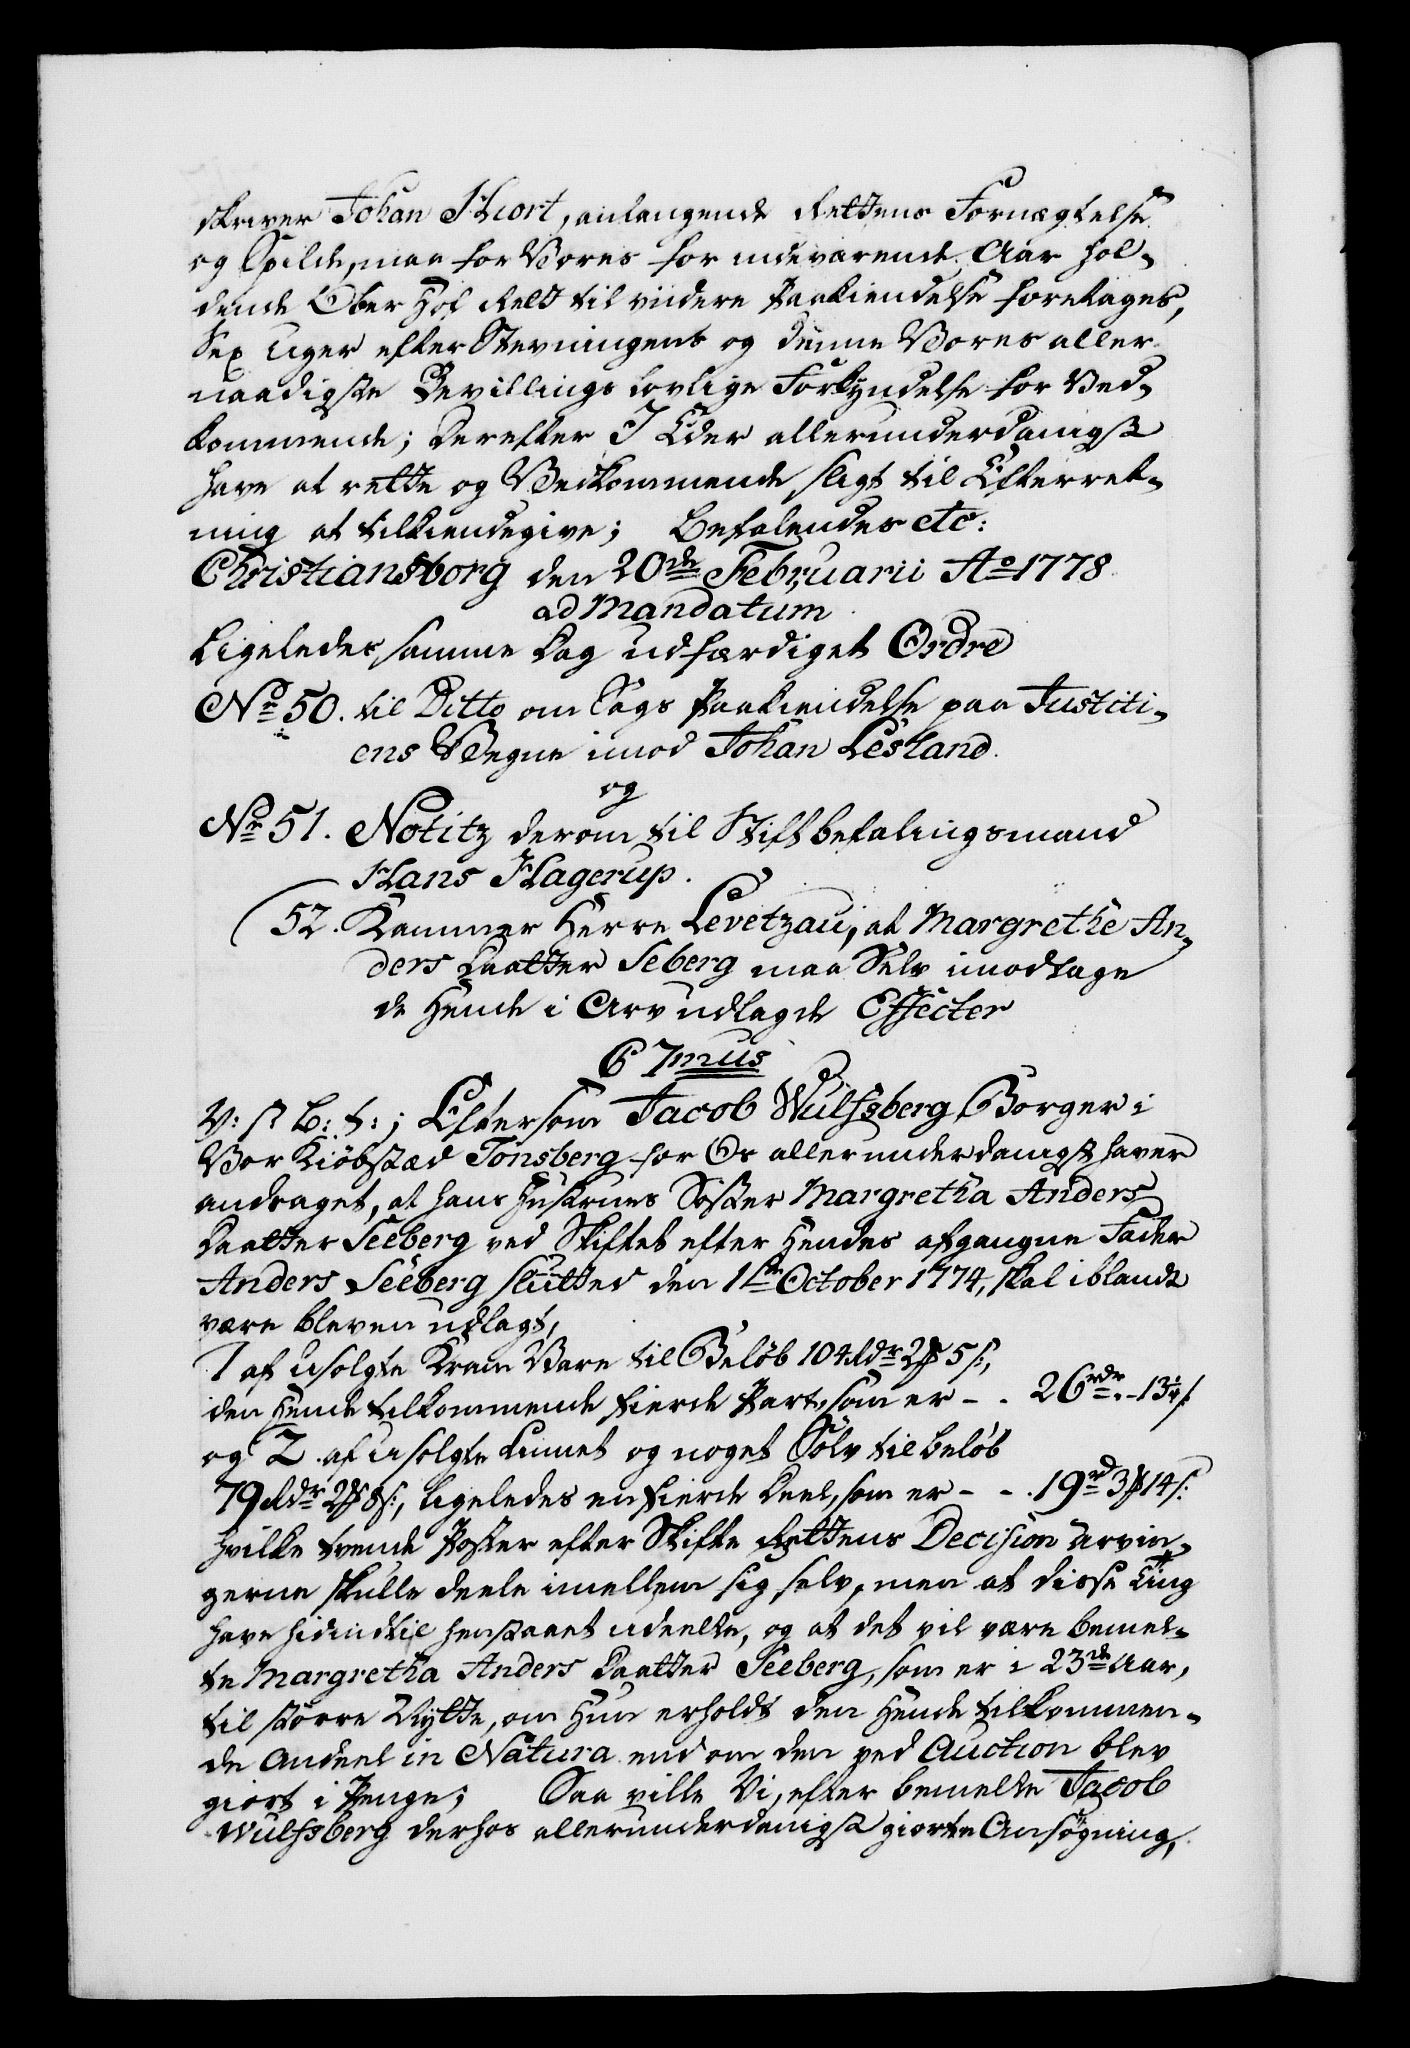 skriver Johan Hiort, anlangende Rettens Fornægtelse
og Spilde, maa for Vores for indeværende Aar hol-
dende Ober Hof Rett til videre Paakiendelse foretages,
Sex Uger efter Stevningens og denne Vores aller-
naadigste Bevillings lovlige Forkyndelse for Ved-
kommende; Derefter I Eder allerunderdanigst
have at rette og Vedkommende sligt til Efterret-
ning at tilkiendegive; Befalendes etc:
Christiansborg den 20de Februarii Ao 1778
ad Mandatum
Ligeledes samme Dag udfærdiget Ordre
No 50. til Ditto om Sags Paakiendelse paa Justiti-
ens Vegne imod Johan Lesland.
og
No 51. Notitz derom til Stiftbefalingsmand
Hans Hagerup.
52. Kammer Herre Levetzau, at Margrethe An-
ders Daatter Seberg maa Selv imodtage
de Hende i Arv udlagde Effecter
67mus
V: S B: t:; Eftersom Jacob Wulfsberg Borger i
Vor Kiöbstæd Tönsberg for Os allerunderdanigst haver
andraget, at hans Hustrues Söster Margretha Anders
Daatter Seeberg ved Skiftet efter Hendes afgangne Fader
Anders Seeberg sluttet den 1ste October 1774, skal iblandt
være bleven udlagt,
1 af usolgte Kram Vare til Belöb 104 rdr 2 ₰ 5 s:,
den Hende tilkommende fierde Part, som er - - 26 rdr. - 13¼ s.
og 2 af usolgte Linnet og noget Sölv til belöb
79 rdr 2 ₰ 8 s:, ligeledes en fierde Deel, som er - - 19 rd 3 ₰ 14 s:
hvilke tvende Poster efter Skifte Rettens Decision Arvin-
gerne skulle deele imellem sig selv, men at disse Ting
have hidindtil henstaaet udeelte, og at det vil være bemel-
te Margretha Anders Daatter Seeberg, som er i 23de Aar,
til större Nytte, om Hun erholdt den Hende tilkommen-
de Andeel in Natura end om den ved Auction blev
giort i Penge; Saa ville Vi, efter bemelte Jacob
Wulfsberg derhos allerunderdanigst giorte Ansögning,